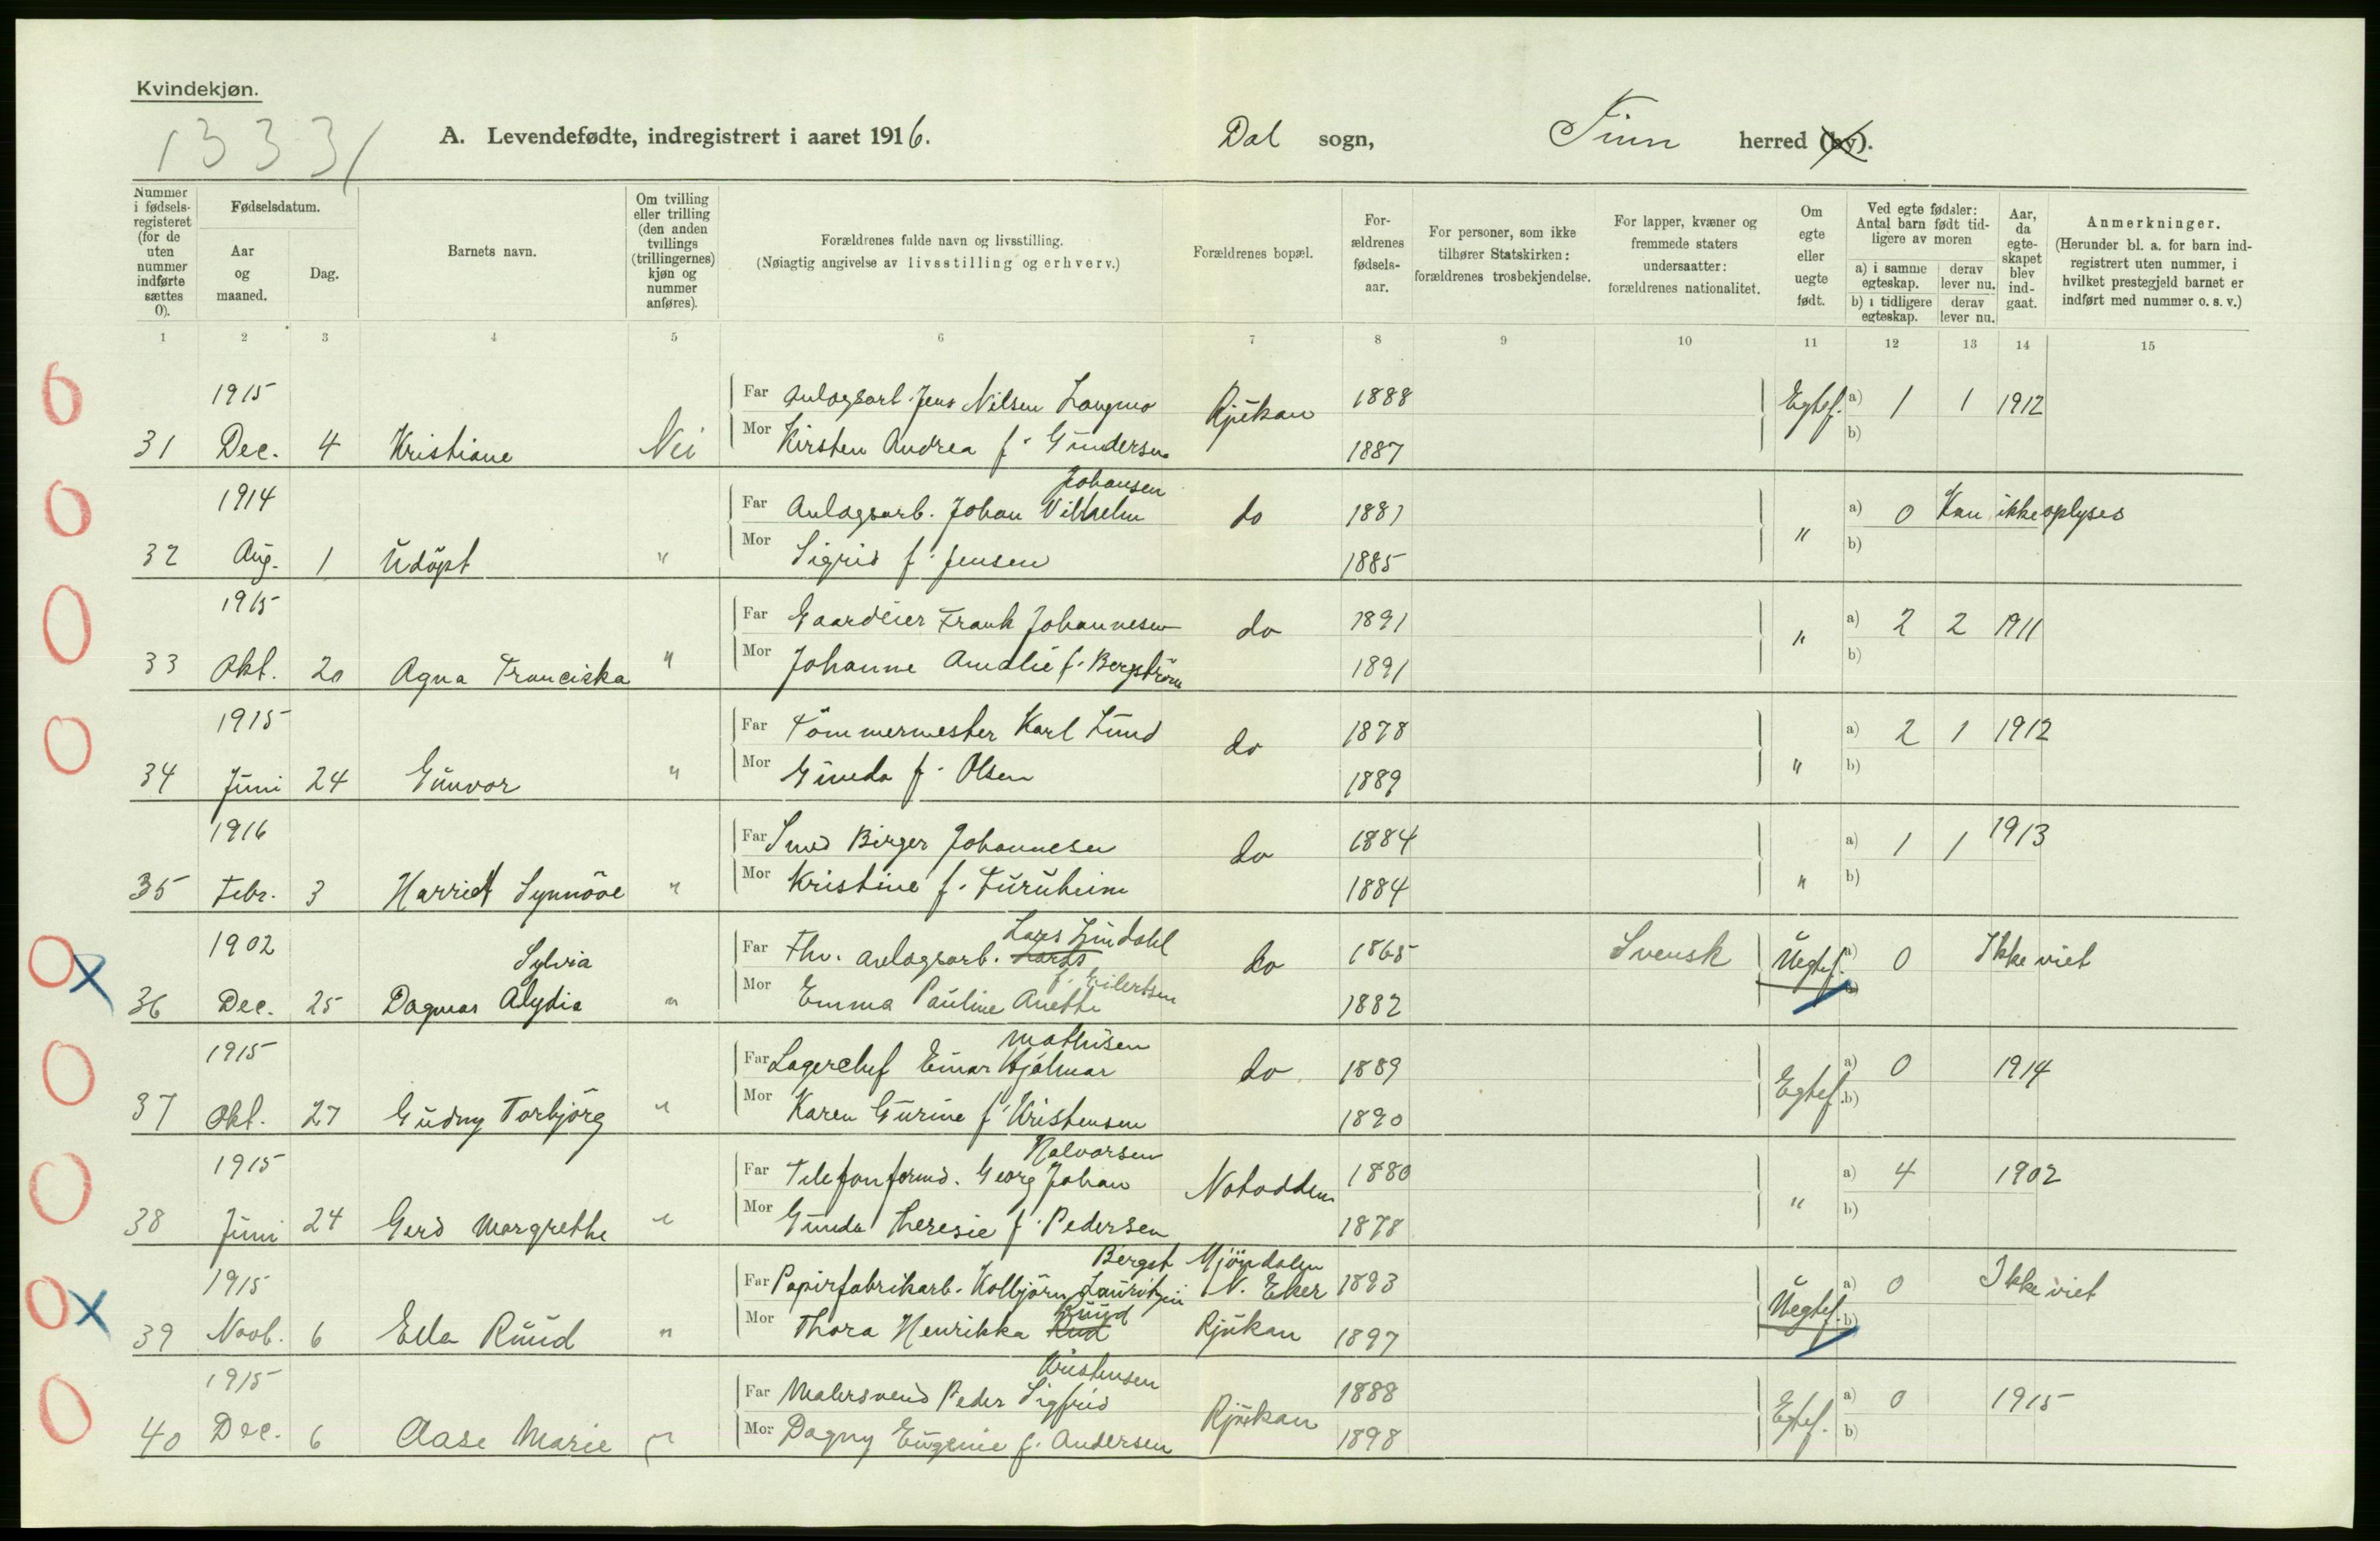 Kvindekjøn.
13331
A. Levendefødte, indregistrert i aaret 1916. Dal sogn, Tinn herred (by).
Nummer i fødselsregisteret (for de uten nummer indførte sættes 0).
Fødselsdatum.
Aar og maaned.
Dag.
Barnets navn.
Om tvilling eller trilling (den anden tvillings (trillingernes) kjøn og nummer anføres).
Forældrenes fulde navn og livsstilling.
(Nøiagtig angivelse av livsstilling og erhverv.)
Forældrenes bopæl.
Forældrenes fødselsaar.
For personer, som ikke tilhører Statskirken: forældrenes trosbekjendelse.
For lapper, kvæner og fremmede staters undersaatter: forældrenes nationalitet.
Om egte eller uegte født.
Ved egte fødsler: Antal barn født tidligere av moren
a) i samme egteskap. derav lever nu.
b) i tidligere egteskap. derav lever nu.
Aar, da egteskapet blev indgaat.
Anmerkninger.
(Herunder bl. a. for barn indregistrert uten nummer, i hvilket prestegjeld barnet er indført med nummer o. s. v.)
1 2 3 4 5 6 7 8 9 10 11 12 13 14 15
1915 Far Anlagsarb. Jens Nilsen Langmo Rjukan 1888 Egtef. a) 1 1 1912
31 Dec. 4 Kristiane Nei Mor Kirsten Andrea f. Gundersen 1887 b)
Johansen
1914 Far Anlagsarb. Johan Vilhelm do 1881 " a) 0 Kan ikke oplyses
32 Aug. 1 Udöpt " Mor Sigrid f. Jensen 1885 b)
1915 Far Gaardeier Frank Johannesen do 1891 " a) 2 2 1911
33 Okt. 20 Agna Franciska " Mor Johanne Amalie f. Bergström 1891 b)
1915 Far Tömmermester Karl Lund do 1878 a) 2 1 1912
34 Juni 24 Gunvor " Mor Gunda f. Olsen 1889 " b)
1916 Far Smed Birger Johannesen do 1884 a) 1 1 1913
35 Febr. 3 Harriet Synnöve " Mor Kristine f. Furuheim 1884 " b)
Lars Lindahl
1902 Sylvia Far Fhv. anlagsarb. Lars do 1865 Svensk Uegtef. a) 0 Ikke viet
f. Eilertsen
36 Dec. 25 Dagmar Alydia " Mor Emma Pauline Anethe 1882 b)
Mathisen
1915 Far Lagerchef Einar Hjalmar do 1889 Egtef. a) 0 1914
37 Okt. 27 Gudny Torbjörg " Mor Karen Gurine f. Kristensen 1890 b)
Halvorsen
1915 Far Telefonformd. Georg Johan Notodden 1880 " a) 4 1902
38 Juni 24 Gerd Margrethe " Mor Gunda Theresie f. Pedersen 1878 b)
Bergst Mjöndalen
1915 Far Papirfabrikarb. Kolbjörn Lauritzin N. Eker 1893 Uegtef. a) 0 Ikke viet
Ruud
39 Novb. 6 Ella Ruud " Mor Thora Henrikka Rud Rjukan 1897 b)
Kristensen
1915 Far Malersvend Peder Sigfrid Rjukan 1888 Egtef. a) 0 1915
40 Dec. 6 Aase Marie " Mor Dagny Eugenie f. Andersen 1898 b)